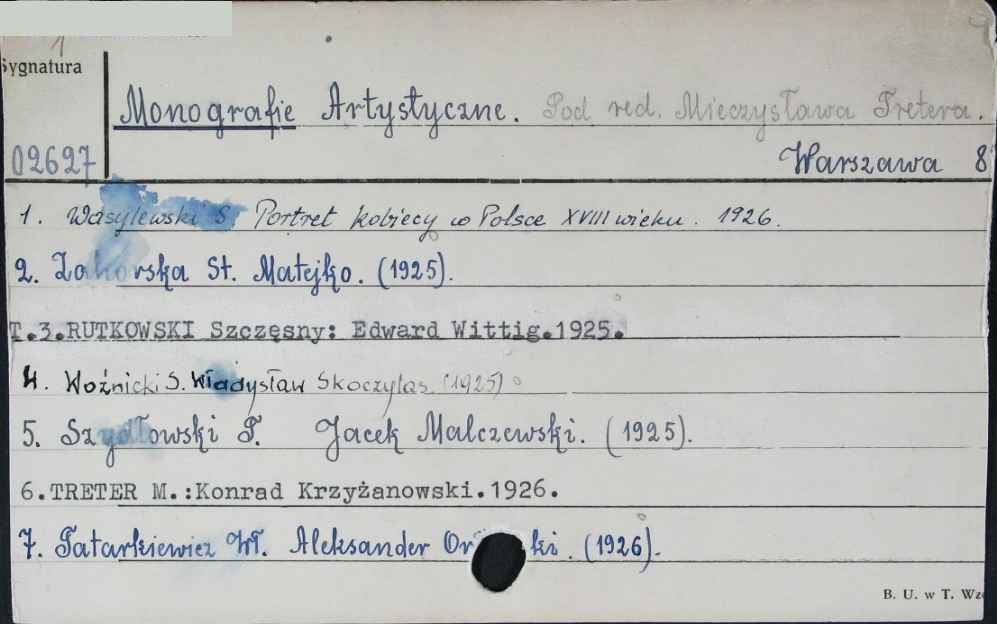 1
Sygnatura
Monografie Artystyczne. Pod red. Mieczysława Tretera.
02627
Warszawa 8°
1. Wasylewski S. Portret kobiecy w Polsce XVIII wieku. 1926.
2. Zahorska St. Matejko. (1925).
T.3.RUTKOWSKI Szczęsny: Edward Wittig.1925.
4. Woźnicki S. Władysław Skoczylas (1925)
5. Szydłowski T. Jacek Malczewski. (1925).
6.TRETER M.:Konrad Krzyżanowski.1926.
7. Tatarkiewicz Wł. Aleksander (1926).
B. U. w T.